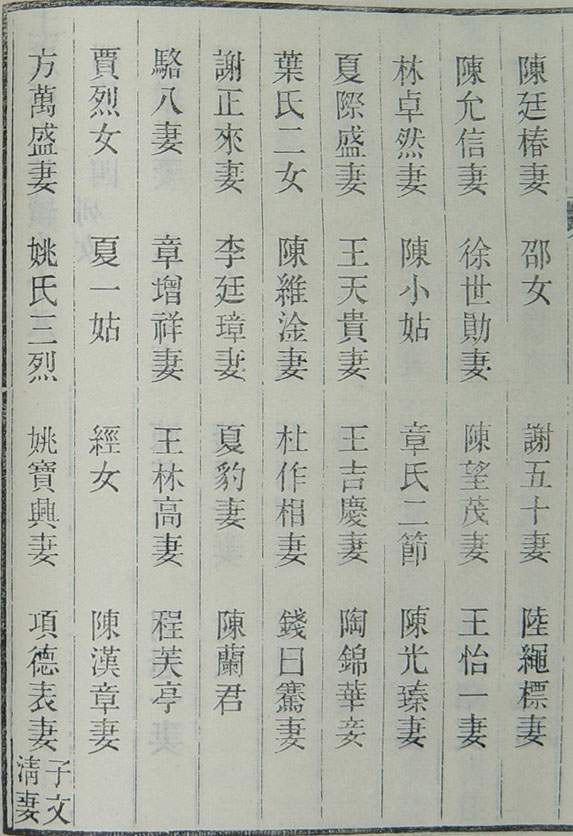 陳廷椿妻 邵女 謝五十妻 陸繩標妻
陳允信妻 徐世勛妻 陳望茂妻 王怡一妻
林卓然妻 陳小姑 章氏二節 陳光臻妻
夏際盛妻 王天貴妻 王吉慶妻 陶錦華妾
葉氏二女 陳維淦妻 杜作相妻 錢日騫妻
謝正來妻 李廷璋妻 夏豹妻 陳蘭君
駱八妻 章增祥妻 王林高妻 程芙亭
賈烈女 夏一姑 經女 陳漢章妻
方萬盛妻 姚氏三烈 姚寶興妻 項德表妻 子文清妻